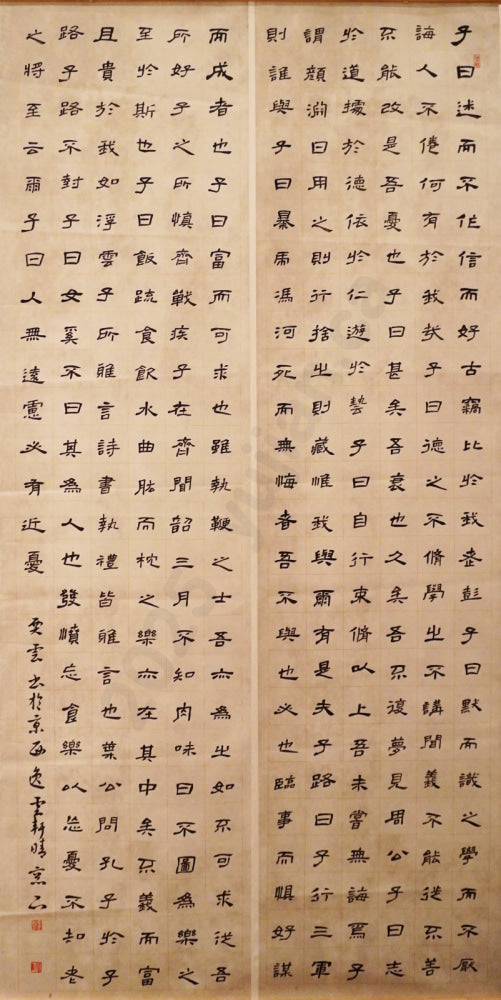 子曰述而不作信而好古竊比於我老彭子曰默而識之學而不厭
誨人不倦何有於我哉子曰德之不脩學之不講聞義不能徙不善
不能改是吾憂也子曰甚矣吾衰也久矣吾不復夢見周公子曰志
於道據於德依於仁遊於藝子曰自行束脩以上吾未嘗無誨焉子
謂顏淵曰用之則行捨之則藏惟我與爾有是夫子路曰子行三軍
則誰與子曰暴虎馮河死而無悔者吾不與也必也臨事而懼好謀
而成者也子曰富而可求也雖執鞭之士吾亦為之如不可求從吾
所好子之所慎齊戰疾子在齊聞韶三月不知肉味曰不圖為樂之
至於斯也子曰飯疏食飲水曲肱而枕之樂亦在其中矣不義而富
且貴於我如浮雲子所雅言詩書執禮皆雅言也葉公問孔子於子
路子路不對子曰女奚不曰其為人也發憤忘食樂以忘憂不知老
之將至云爾子曰人無遠慮必有近憂
雲书於京西逸雲軒晴窗下